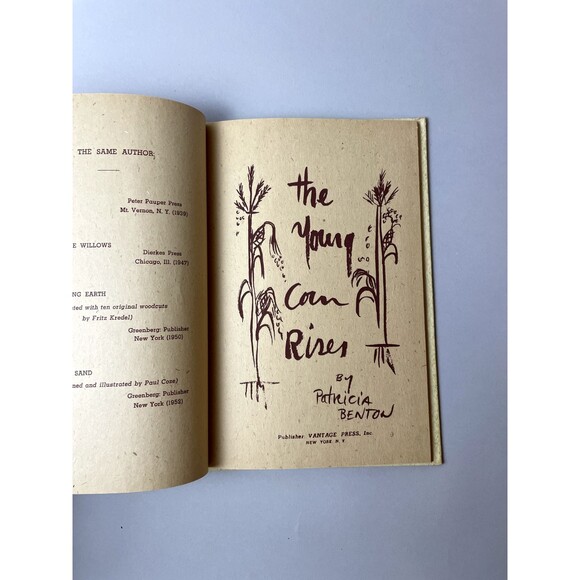 THE SAME AUTHOR:
Peter Pauper Press
Mt. Vernon, N. Y.
E WILLOWS
Dierkes Press
Chicago, Ill. (1947)
NG EARTH
ted with ten original woodcuts
by Fritz Kredel)
Greenberg: Publisher
New York (1950)
SAND
ned and illustrated by Paul Coze)
Greenberg: Publisher
New York (1952)
the
Young
Corn
Rises
BY
PATRICIA
BENTON
Publisher VANTAGE PRESS, Inc.
NEW YORK, N. Y.